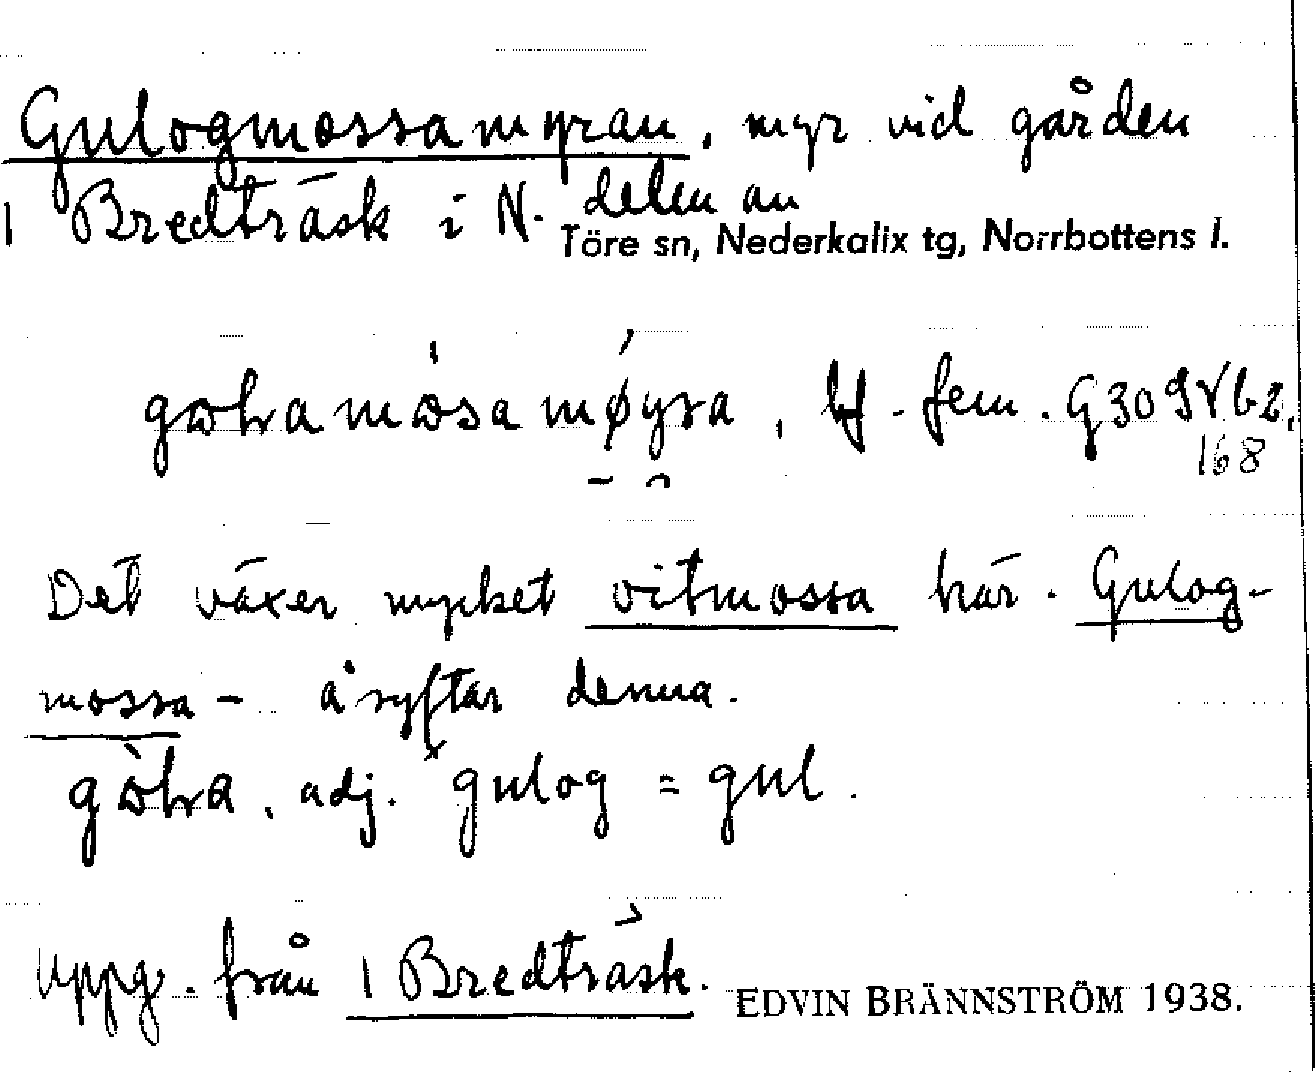 Gulogmossamyran, myr vid gården
1 Bredträsk i N. delen av
Töre sn, Nederkalix tg, Norrbottens l.
bf. fem.
168
Det växer mycket vitmossa här. Gulog-
mossa- åsyftar denna.
adj. gulog = gul.
Uppg. från 1 Bredträsk.
EDVIN BRÄNNSTRÖM 1938.